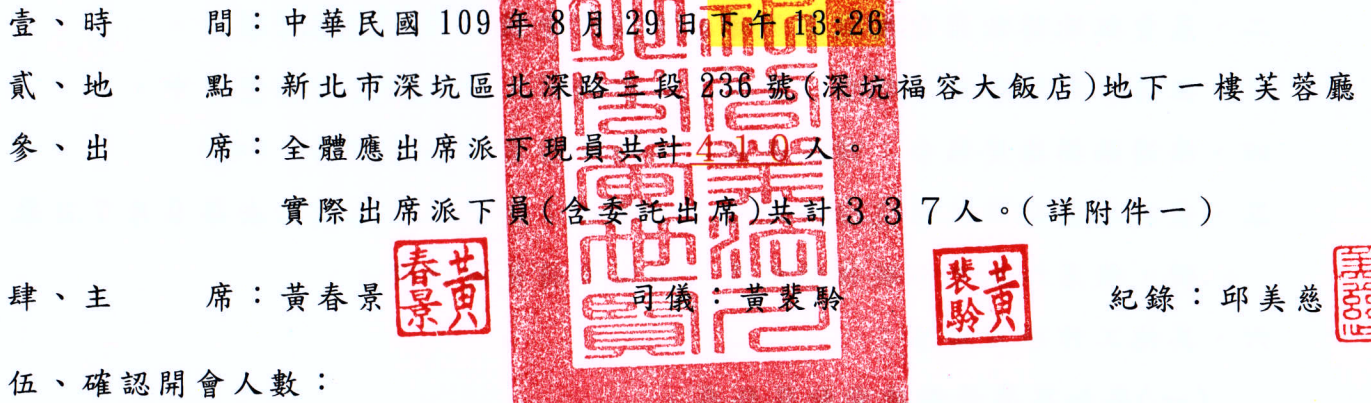 壹、時　　間：中華民國 109 年 8 月 29 日下午 13:26
貳、地　　點：新北市深坑區北深路三段 236 號(深坑福容大飯店)地下一樓芙蓉廳
參、出　　席：全體應出席派下現員共計４１０人。
實際出席派下員(含委託出席)共計３３７人。(詳附件一)
肆、主　　席：黃春景　　司儀：黃裴聆　　紀錄：邱美慈
黃春景
黃裴聆
伍、確認開會人數：